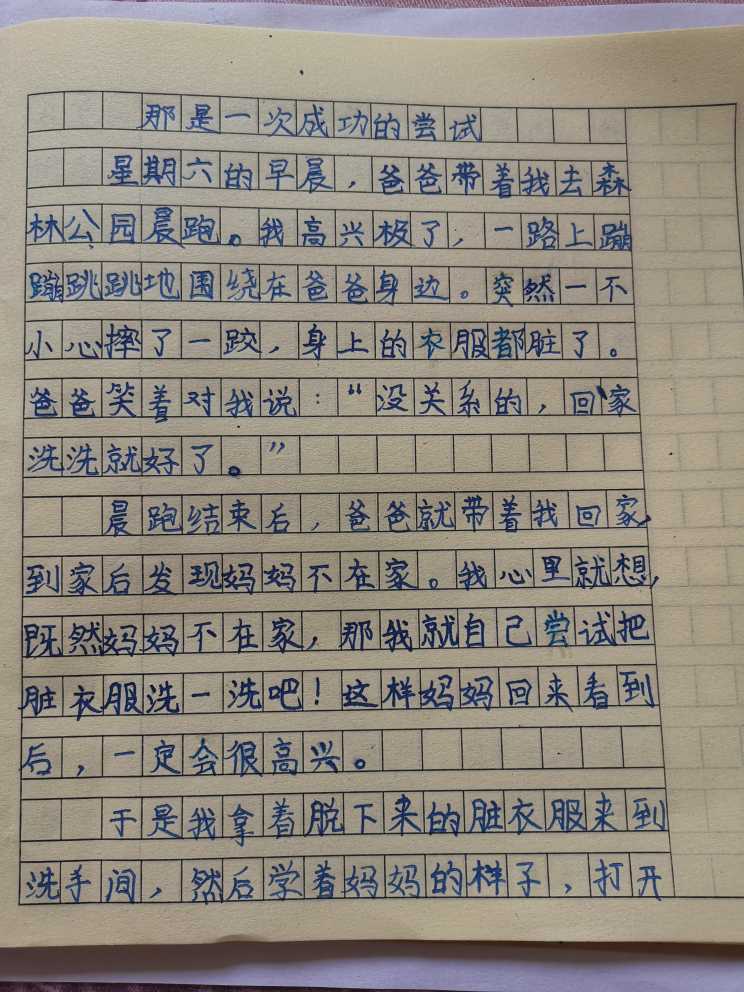 那是一次成功的尝试
星期六的早晨，爸爸带着我去森
林公园晨跑。我高兴极了，一路上蹦
蹦跳跳地围绕在爸爸身边。突然一不
小心摔了一跤，身上的衣服都脏了。
爸爸笑着对我说：“没关系的，回家
洗洗就好了。”
晨跑结束后，爸爸就带着我回家，
到家后发现妈妈不在家。我心里就想，
既然妈妈不在家，那我就自己尝试把
脏衣服洗一洗吧！这样妈妈回来看到
后，一定会很高兴。
于是我拿着脱下来的脏衣服来到
洗手间，然后学着妈妈的样子，打开